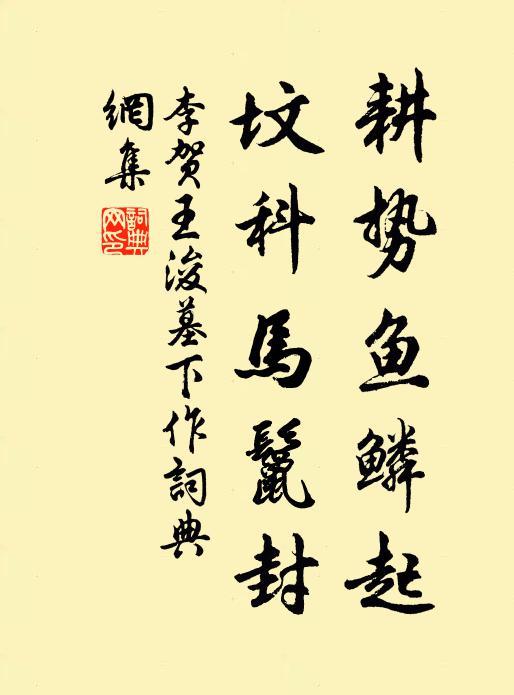 耕势鱼鳞起
坟科馬鬣封
李贺王濬墓下作詞典
網集
詞典
网印